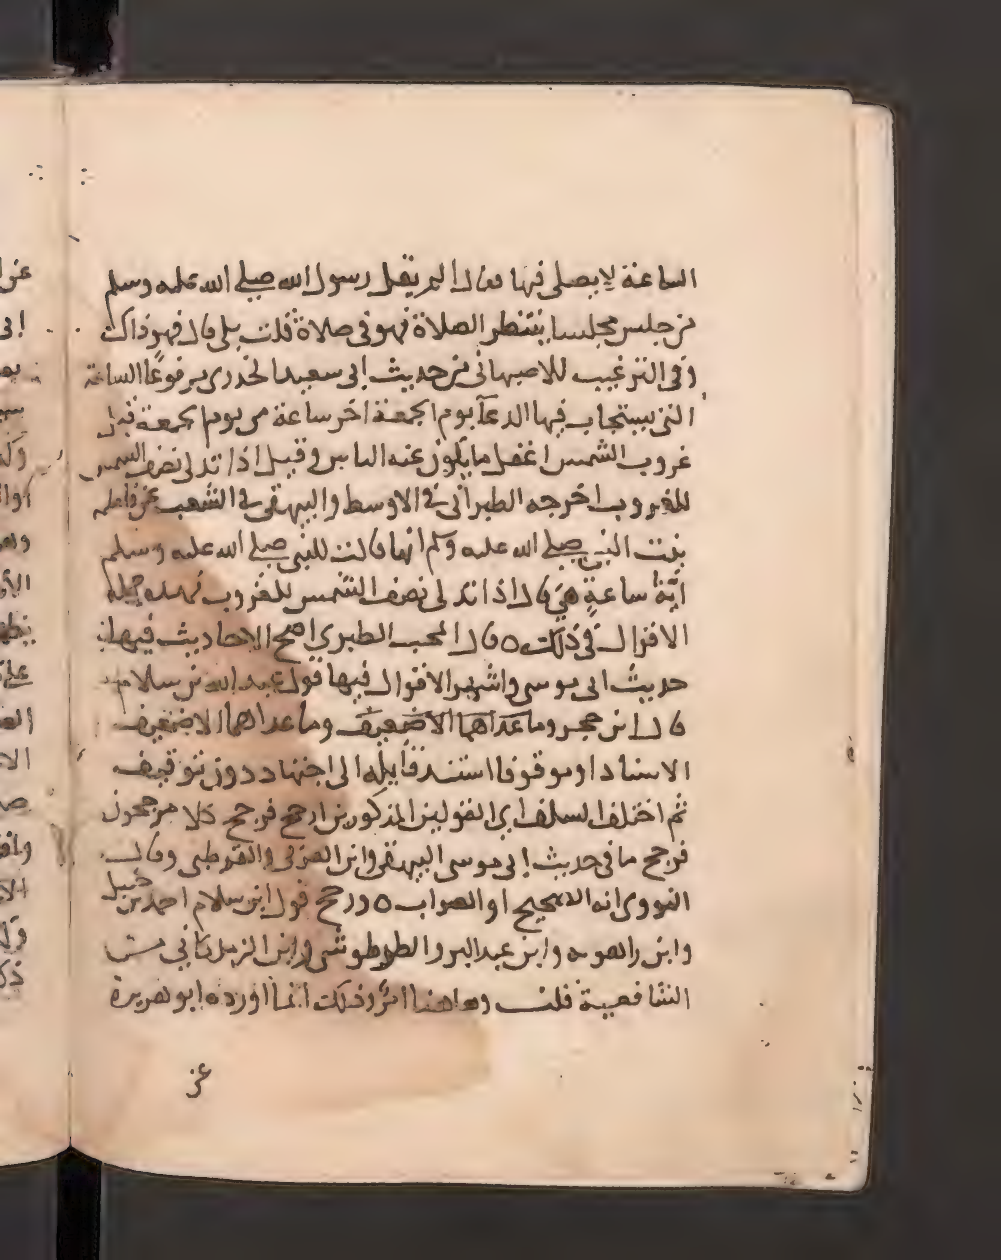 الساعة لا يصلى فيها فقال الم يقل رسول الله صلى الله عليه وسلم
من جلس مجلسا ينتظر الصلاة فهو في صلاة قلت بلى قال فهو ذاك
وفي الترغيب للاصبهاني من حديث ابي سعيد الخدري مرفوعا الساعة
التي يستجاب فيها الدعآ يوم الجمعة اخر ساعة من يوم الجمعة قبل
غروب الشمس اغفل ما يكون عنه الناس وقيل اذا تدلى نصف الشمس
للغروب اخرجه الطبراني في الاوسط والبيهقي في الشعب عن فاطمه
بنت النبي صلى الله عليه وسلم انها قالت للنبي صلى الله عليه وسلم
اية ساعة هي قال اذا تدلى نصف الشمس للغروب فهذه جملة
الاقوال في ذلك ه قال المحب الطبري اصح الاحاديث فيها
حديث ابي موسى واشهر الاقوال فيها قول عبد الله بن سلام
قال ابن حجر وما عداهما الا ضعيف وما عداهما الا ضعيف
الاسناد او موقوفا استند قايله الى اجتهاد دون توقيف
ثم اختلف السلف اي القولين المذكورين ارجح فرجح كلا مرجحون
فرجح ما في حديث ابي موسى البيهقي وابن العربي والقرطبي وقال
النووي انه الصحيح او الصواب ه ورجح قول ابن سلام احمد بن حنبل
وابن راهويه وابن عبد البر والطرطوشي وابن الزملكاني من
الشافعية قلت وهاهنا امر وذلك انما اورده ابو هريرة
عن